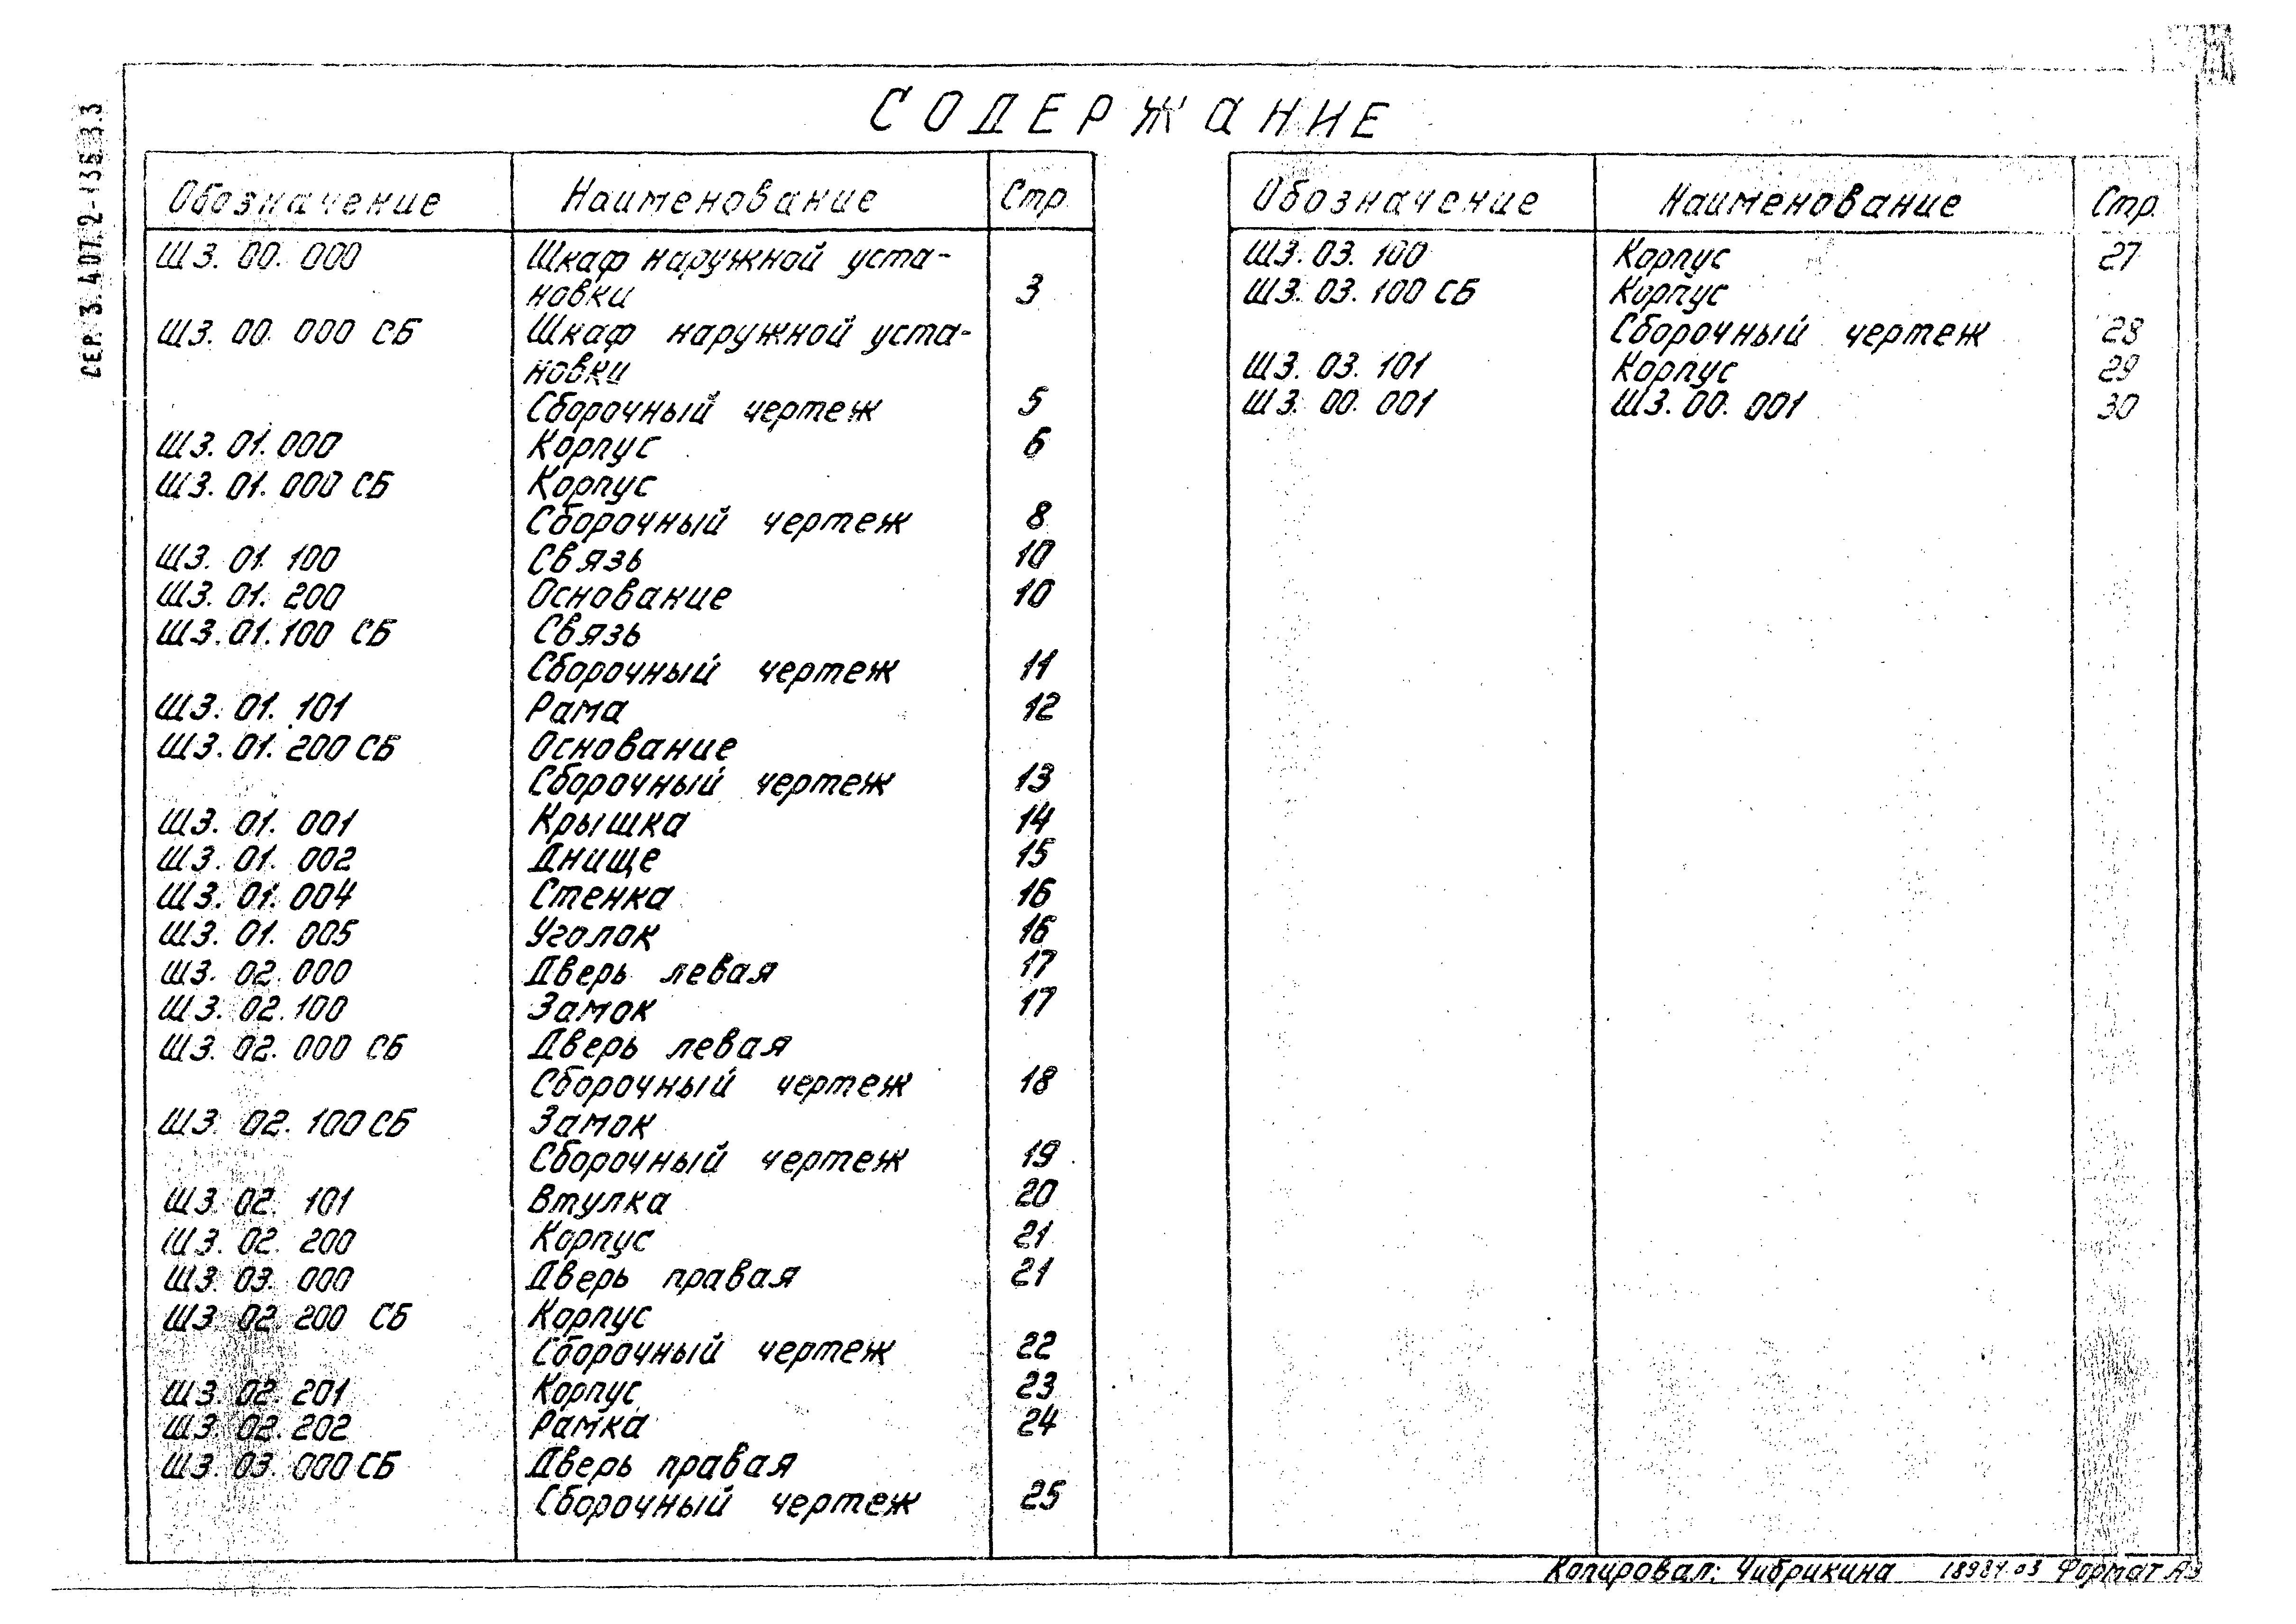 СОДЕРЖАНИЕ
СЕР. 3.407.2-136 В.3
Обозначение Наименование Стр.
ШЗ. 00. 000 Шкаф наружной уста-
новки 3
ШЗ. 00. 000 СБ Шкаф наружной уста-
новки
Сборочный чертеж 5
ШЗ. 01. 000 Корпус 6
ШЗ. 01. 000 СБ Корпус
Сборочный чертеж 8
ШЗ. 01. 100 Связь 10
ШЗ. 01. 200 Основание 10
ШЗ. 01. 100 СБ Связь
Сборочный чертеж 11
ШЗ. 01. 101 Рама 12
ШЗ. 01. 200 СБ Основание
Сборочный чертеж 13
ШЗ. 01. 001 Крышка 14
ШЗ. 01. 002 Днище 15
ШЗ. 01. 004 Стенка 16
ШЗ. 01. 005 Уголок 16
ШЗ. 02. 000 Дверь левая 17
ШЗ. 02. 100 Замок 17
ШЗ. 02. 000 СБ Дверь левая
Сборочный чертеж 18
ШЗ. 02. 100 СБ Замок
Сборочный чертеж 19
ШЗ. 02. 101 Втулка 20
ШЗ. 02. 200 Корпус 21
ШЗ. 03. 000 Дверь правая 21
ШЗ. 02. 200 СБ Корпус
Сборочный чертеж 22
ШЗ. 02. 201 Корпус 23
ШЗ. 02. 202 Рамка 24
ШЗ. 03. 000 СБ Дверь правая
Сборочный чертеж 25
Обозначение Наименование Стр.
ШЗ. 03. 100 Корпус 27
ШЗ. 03. 100 СБ Корпус
Сборочный чертеж 28
ШЗ. 03. 101 Корпус 29
ШЗ. 00. 001 ШЗ. 00. 001 30
Копировал: Чибрикина 18984-03 Формат А3